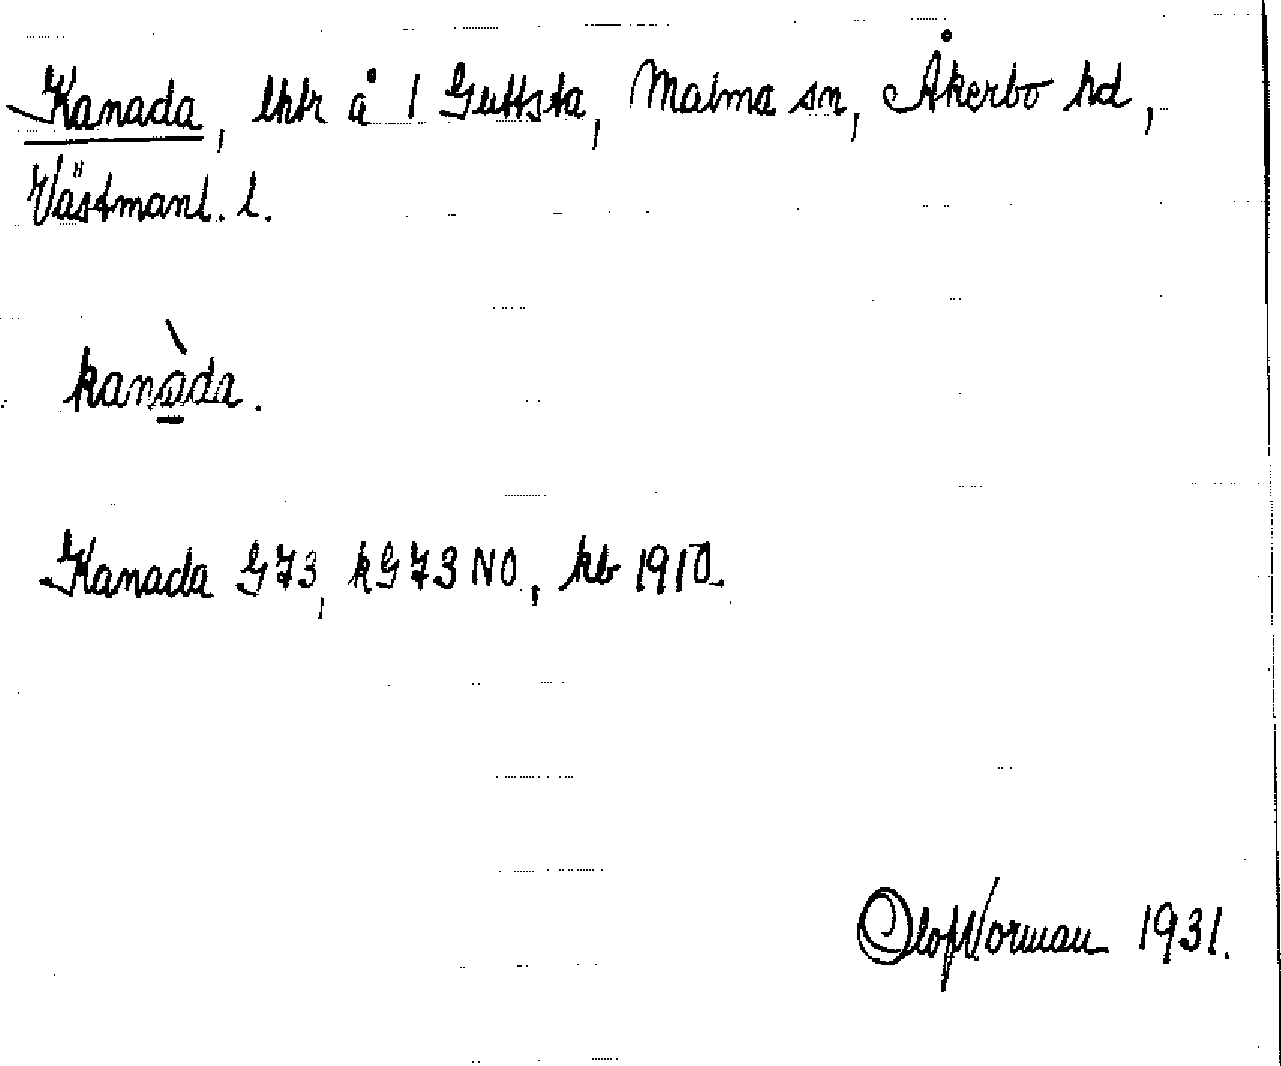 Kanada, lhtr å 1 Guttsta, Malma sn, Åkerbo hd,
Västmanl. l.
kanàda.
Kanada G73, kG73NO, kb 1910.
Olof Norman 1931.